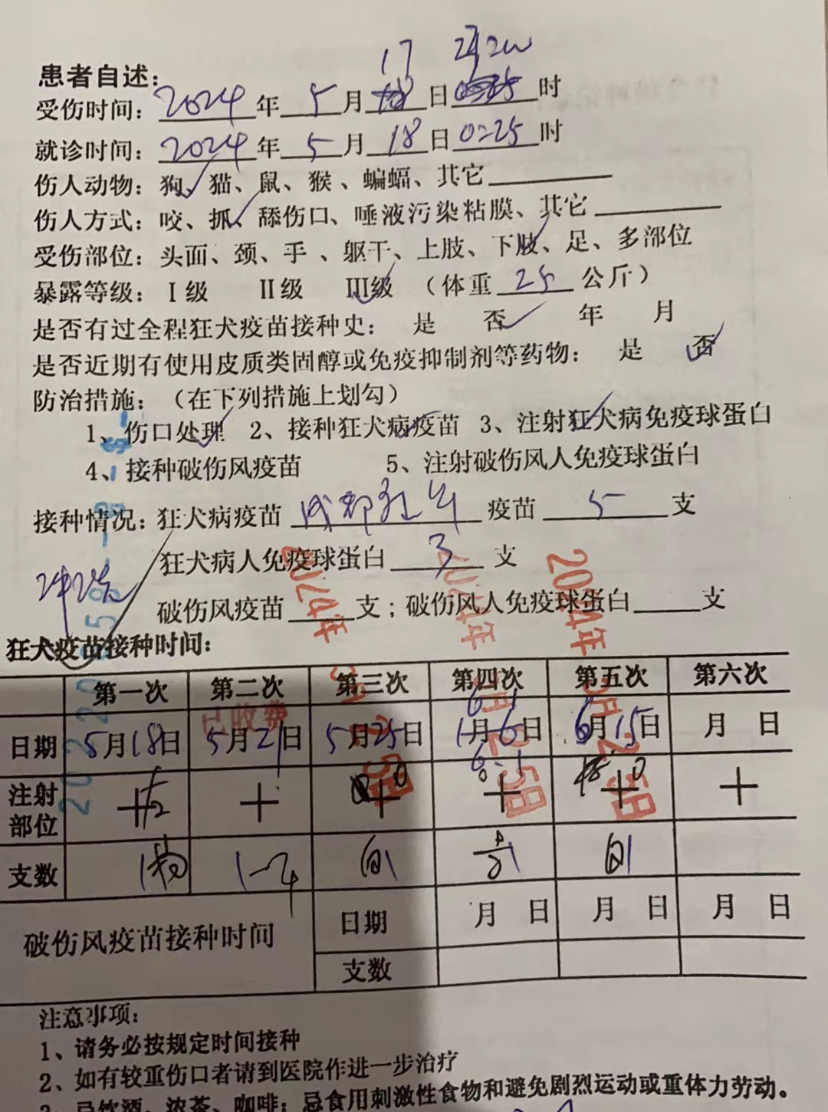 17
患者自述：
受伤时间：2024年5月日时
就诊时间：2024年5月18日0:25时
伤人动物：狗、猫、鼠、猴、蝙蝠、其它
伤人方式：咬、抓、舔伤口、唾液污染粘膜、其它
受伤部位：头面、颈、手、躯干、上肢、下肢、足、多部位
暴露等级：Ⅰ级 Ⅱ级 Ⅲ级（体重25公斤）
是否有过全程狂犬疫苗接种史：是 否 年 月
是否近期有使用皮质类固醇或免疫抑制剂等药物：是 否
防治措施：（在下列措施上划勾）
1、伤口处理 2、接种狂犬病疫苗 3、注射狂犬病免疫球蛋白
4、接种破伤风疫苗 5、注射破伤风人免疫球蛋白
接种情况：狂犬病疫苗 疫苗5支
狂犬病人免疫球蛋白3支
破伤风疫苗 支；破伤风人免疫球蛋白 支
狂犬疫苗接种时间：
第一次 第二次 第三次 第四次 第五次 第六次
已收费
日期 5月18日 5月21日 5月25日 月 日 6月15日 月 日
注射部位
支数
破伤风疫苗接种时间 日期 月 日 月 日 月 日
支数
注意事项：
1、请务必按规定时间接种
2、如有较重伤口者请到医院作进一步治疗
忌饮酒、浓茶、咖啡；忌食用刺激性食物和避免剧烈运动或重体力劳动。